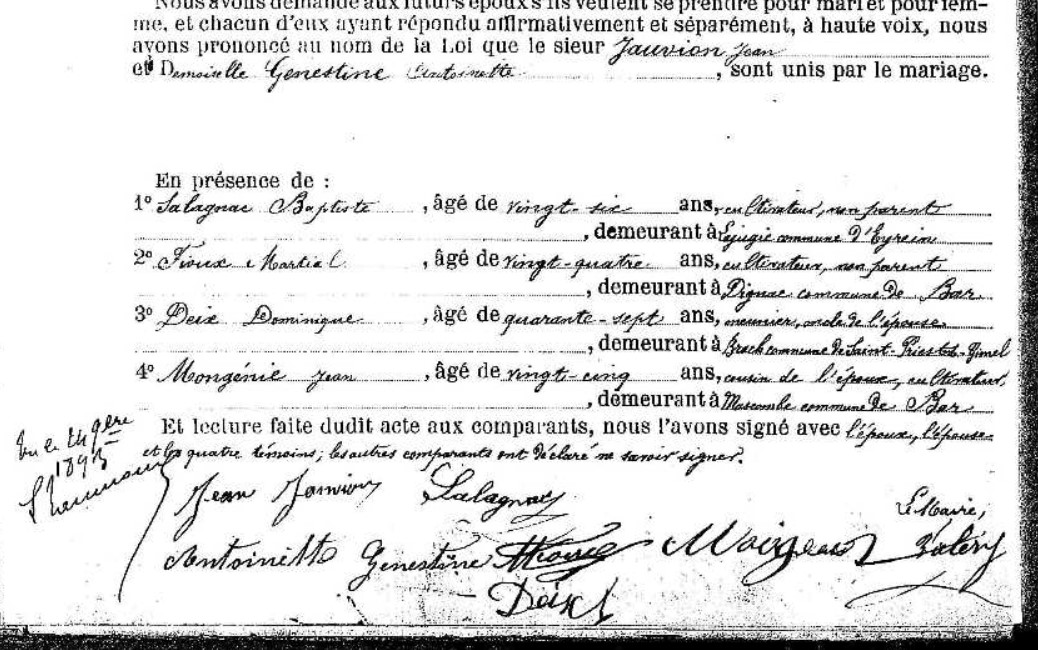 Nous avons demandé aux futurs époux s'ils veulent se prendre pour mari et pour fem-
me, et chacun d'eux ayant répondu affirmativement et séparément, à haute voix, nous
avons prononcé au nom de la Loi que le sieur Jauvion Jean
et Demoiselle Genestine Antoinette, sont unis par le mariage.
En présence de :
1º Salagnac Baptiste, âgé de vingt-six ans, cultivateur, non parent
, demeurant à Lejugie commune d'Eyrein
2º Fioux Martial, âgé de vingt-quatre ans, cultivateur, non parent
, demeurant à Pignac commune de Bar
3º Deix Dominique, âgé de quarante-sept ans, meunier, oncle de l'épouse
, demeurant à Brach commune de Saint-Priest-de-Gimel
4º Mongénie Jean, âgé de vingt-cinq ans, cousin de l'époux, cultivateur,
, demeurant à Mascombe commune de Bar
Et lecture faite dudit acte aux comparants, nous l'avons signé avec l'époux, l'épouse
et les quatre témoins; les autres comparants ont déclaré ne savoir signer.
1893
Jean Jauvion Salagnac
Le Maire,
Antoinette Genestine Fioux
Deix